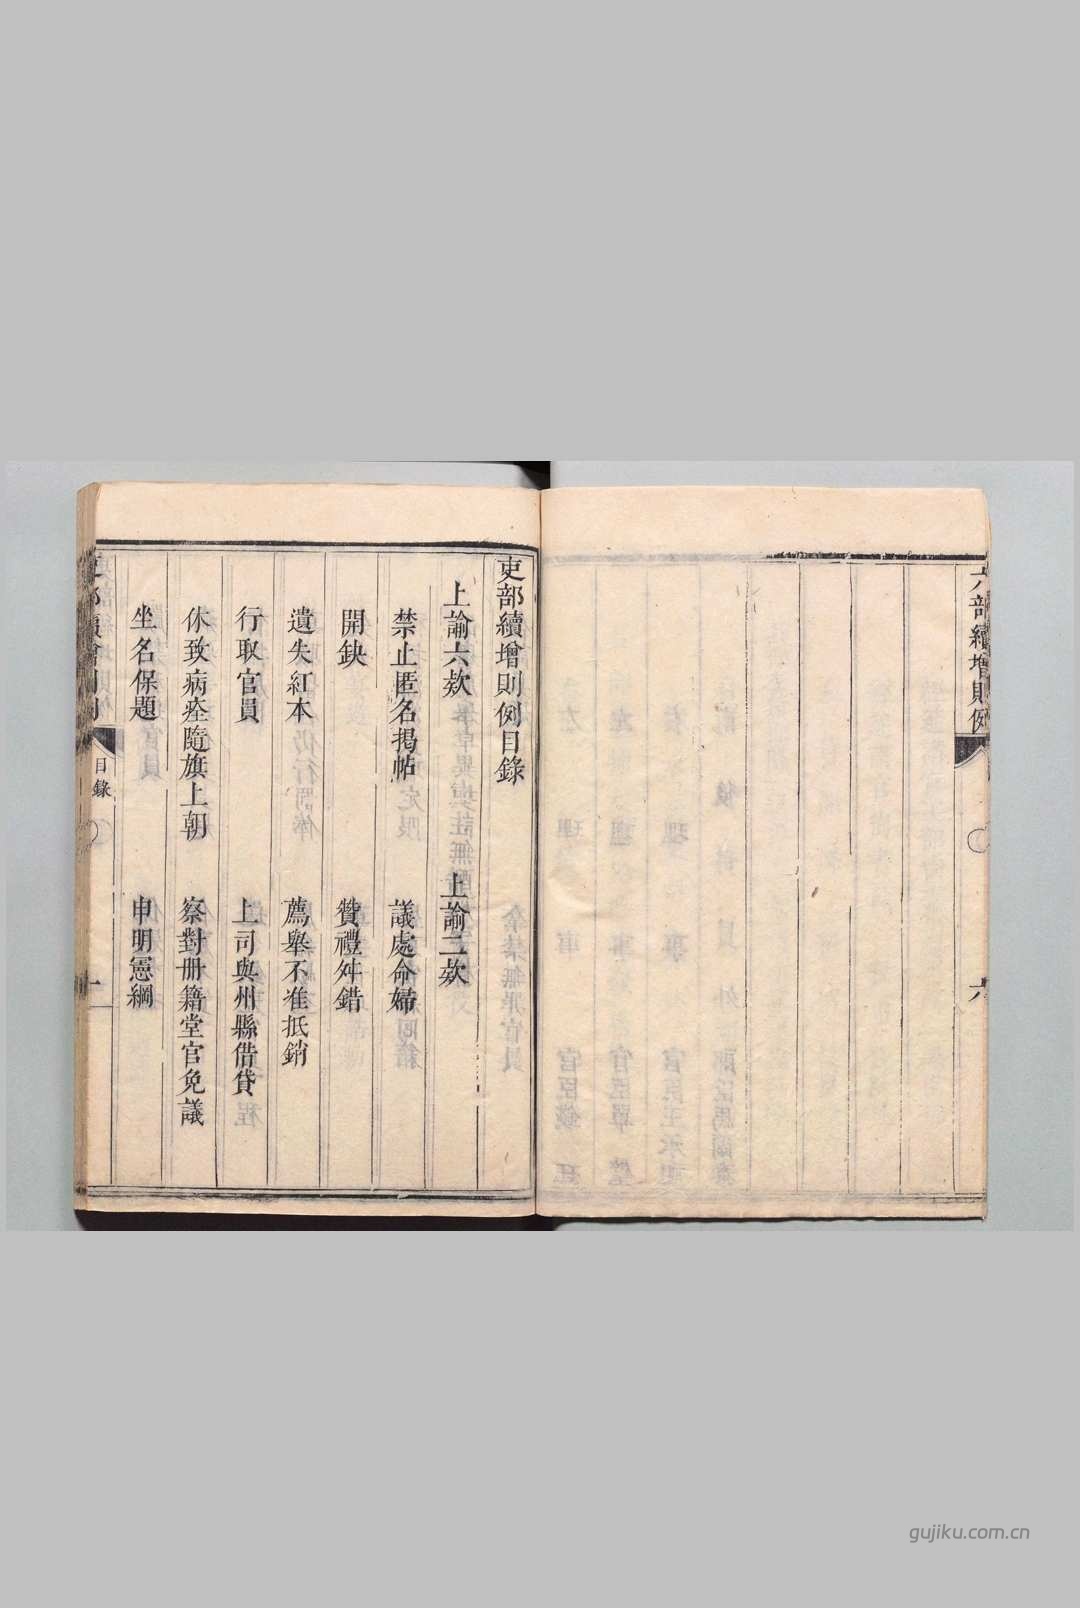 六部續增則例
六
吏部續增則例目錄
上諭六欵
上諭二欵
禁止匿名揭帖
議處命婦
開鈌
贊禮舛錯
遺失紅本
薦舉不准抵銷
行取官員
上司與州縣借貸
休致病痊隨旗上朝
察對册籍堂官免議
坐名保題
申明憲綱
吏部續增則例
目錄
一
gujiku.com.cn